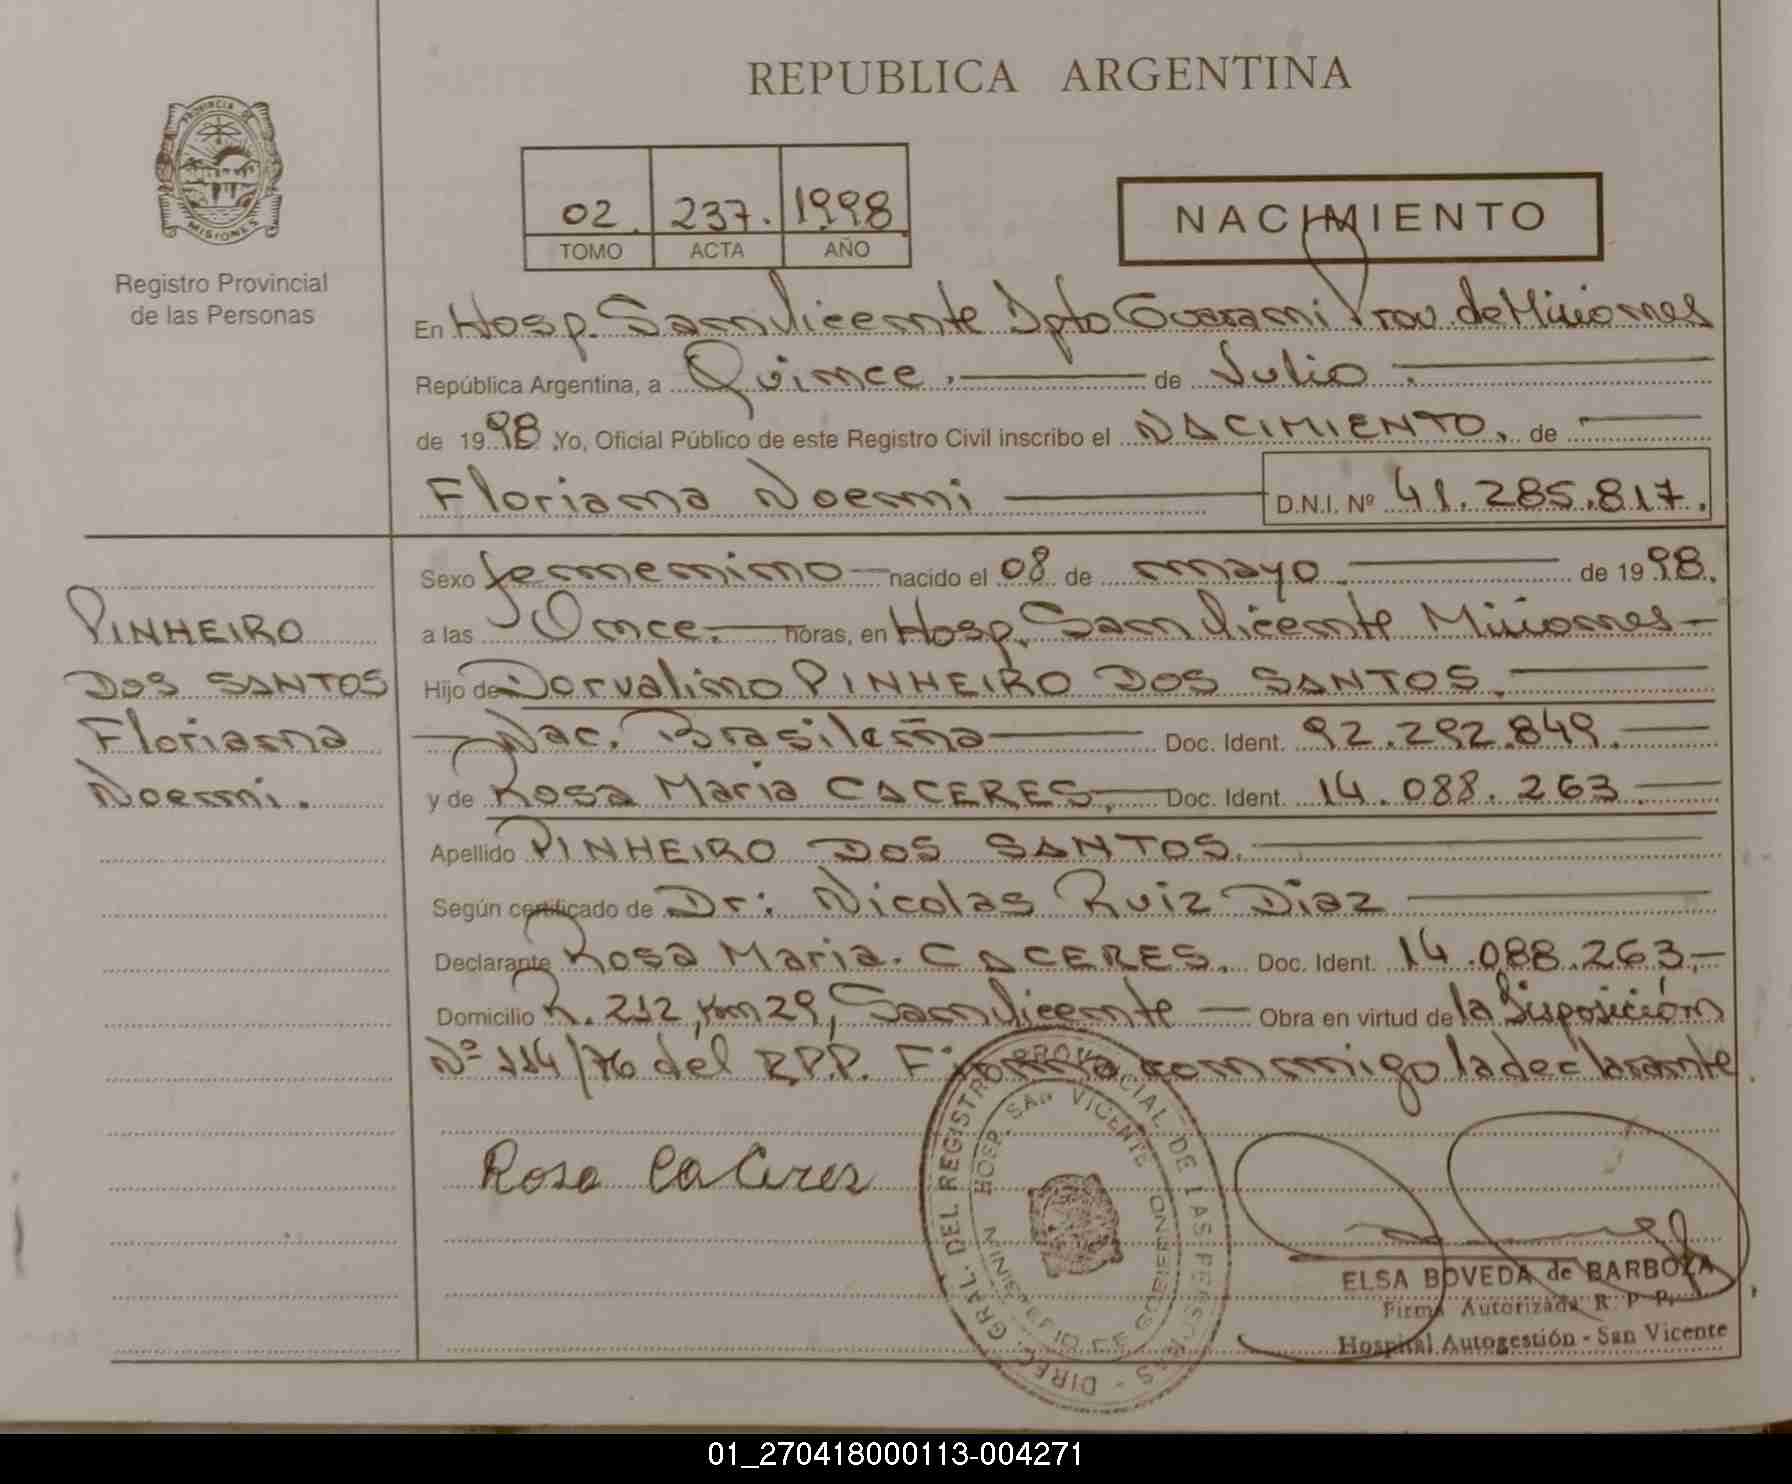 REPUBLICA ARGENTINA
PROVINCIA DE
MISIONES
Registro Provincial
de las Personas
02. 237. 1998.
TOMO ACTA AÑO
NACIMIENTO
En Hosp. San Vicente Dpto Guarani Prov. de Misiones
República Argentina, a Quince. de Julio.
de 1998. Yo, Oficial Público de este Registro Civil inscribo el NACIMIENTO. de
Floriana Noemi D.N.I. Nº 41.285.817.
Sexo femenino nacido el 08 de mayo. de 1998.
a las Once. horas, en Hosp. San Vicente Misiones
Hijo de Dorvalino PINHEIRO DOS SANTOS.
Nac. Brasileña Doc. Ident. 92.292.849.
y de Rosa Maria CACERES, Doc. Ident. 14.088.263.
Apellido PINHEIRO DOS SANTOS.
Según certificado de Dr: Nicolas Ruiz Diaz
Declarante Rosa Maria. CACERES. Doc. Ident. 14.088.263.
Domicilio R. 212, Km 29, San Vicente Obra en virtud de la Disposición
Nº 114/76 del R.P.P. Firma conmigo la declarante.
PINHEIRO
DOS SANTOS
Floriana
Noemi.
Rosa Caceres
DIREC. GRAL. DEL REGISTRO PROVINCIAL DE LAS PERSONAS
HOSP. SAN VICENTE
MINISTERIO DE GOBIERNO
ELSA BOVEDA de BARBOZA
Firma Autorizada R. P. P.
Hospital Autogestión - San Vicente
01_270418000113-004271